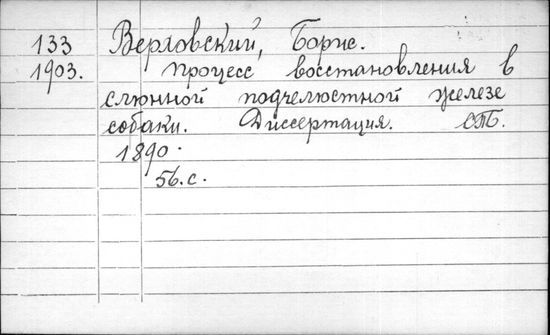 133 Верховский, Борис.
1903. Процесс восстановления в
слюнной подчелюстной железе
собаки. Диссертация. СПБ.
1890.
56.с.